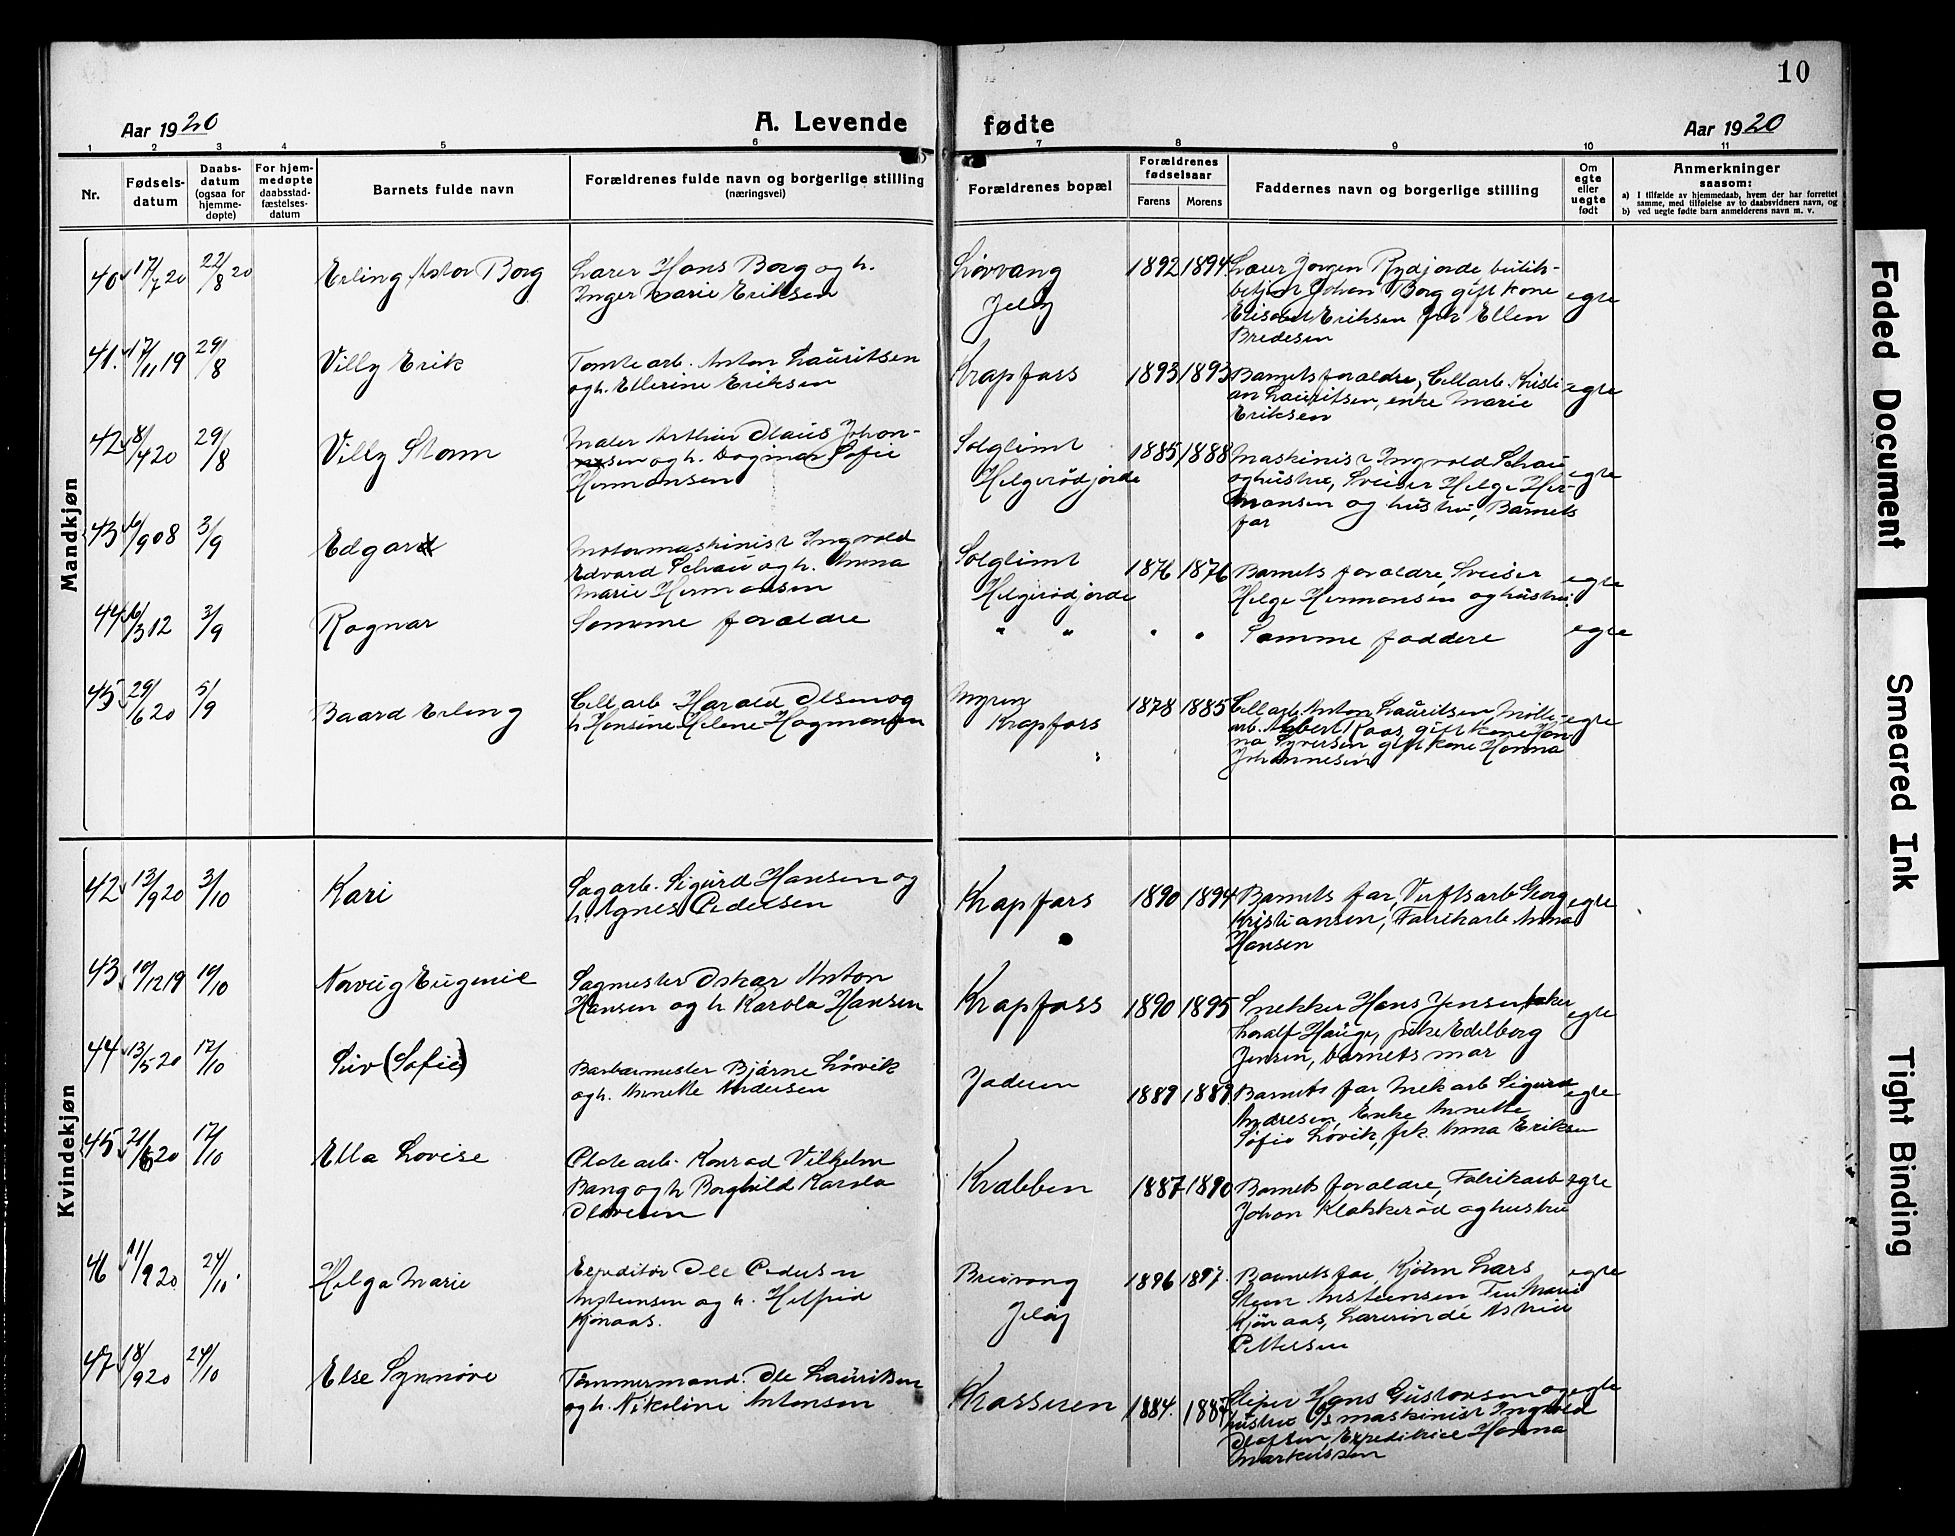 10
Aar 1920
A. Levende fødte
Aar 1920
1 2 3 4 5 6 7 8 9 10 11
Nr.
Fødsels-
datum
Daabs-
datum
(ogsaa for
hjemme-
døpte)
For hjem-
medøpte
daabsstad-
fæstelses-
datum
Barnets fulde navn
Forældrenes fulde navn og borgerlige stilling
(næringsvei)
Forældrenes bopæl
Forældrenes
fødselsaar
Farens
Morens
Faddernes navn og borgerlige stilling
Om
egte
eller
uegte
født
Anmerkninger
saasom:
a) I tilfælde av hjemmedaab, hvem der har forrettet
samme, med tilføielse av to daabsvidners navn, og
b) ved uegte fødte barn anmelderens navn m. v.
Mandkjøn
40 17/7 20 22/8 20
Erling Astor Borg
Lærer Hans Borg og h.
Inger Marie Eriksen
Løvvang
Jeløy
1892 1894
Lærer Jørgen Rydjorde butik-
betj. Johan Borg gift kone
Elisabet Eriksen frk Ellen
Bredesen
egte
41. 17/11 19 29/8
Villy Erik
Tomtearb. Anton Lauritsen
og h. Ellerine Eriksen
Krapfoss
1893 1893
Barnets forældre, Cellarb. Kristi-
an Lauritsen, enke Marie
Eriksen
egte
42 8/4 20 29/8
Villy Storm
Maler Arthur Olaus Johan-
sen og h. Dagmar Sofie
Hermansen
Solglimt
Helgerødjorde
1885 1888
Maskinist Ingvald Schau
og hustru, Sveiser Helge Her-
mansen og hustru, Barnets
far
egte
43 6/9 08 3/9
Edgard
Motormaskinist Ingvald
Edvard Schau og h. Anna
Marie Hermansen
Solglimt
Helgerødjorde
1876 1876
Barnets forældre, Sveiser
Helge Hermansen og hustru.
egte
44 16/3 12 3/9
Ragnar
Samme forældre
" " " "
Samme faddere
egte
45 29/6 20 5/9
Baard Erling
Cellarb Harald Olsen og
h. Hansine Helene Hagmansen
Myren
Krapfoss
1878 1885
Cellarb. Anton Lauritsen, Mølle-
arb. Albert Raas, gift kone Han-
na Syversen, gift kone Hanna
Johannesen
egte
Kvindekjøn
42 13/9 20 3/10
Kari
Sagarb. Sigurd Hansen og
h. Agnes Pedersen
Krapfoss
1890 1894
Barnets far, Verftsarb Georg
Kristiansen, Fabrikarb Anna
Hansen
egte
43 19/12 19 10/10
Norveig Eugenie
Sagmester Oskar Anton
Hansen og h Karola Hansen
Krapfoss
1890 1895
Snekker Hans Jensen, baker
Toralf Hauge, pike Edelborg
Jensen, barnets mor
egte
44 13/5 20 17/10
Siv (Sofie)
Barbermester Bjarne Løvik
og h. Annette Andersen
Jaderen
1889 1889
Barnets far, Mekarb Sigurd
Andresen, Enke Annette
Sofie Løvik, frk. Anna Eriksen
egte
45 21/6 20 17/10
Ella Lovise
Platearb. Konrad Vilhelm
Bang og h Borghild Karola
Olavesen
Krabben
1887 1890
Barnets forældre, Fabrikarb
Johan Klokkerød og hustru
egte
46 11/9 20 24/10
Helga Marie
Expeditør Ole Pedersen
Anstensen og h. Helfrid
Kjønaas.
Breivang
Jeløy
1896 1897.
Barnets far, Kjøbm Lars
Steen Anstensen Fru Marie
Kjønaas, Lærerinde Astrid
Pettersen
egte
47 18/9 20 24/10
Else Synnøve
Tømmermand. Ole Lauritsen
og h. Nikoline Antonsen
Krasseren
1884. 1884
Sliper Hans Gustavsen og
hustru, maskinist Ingvald
Olafsen, Expeditrice Hanna
Markussen
egte
Faded Document
Smeared Ink
Tight Binding